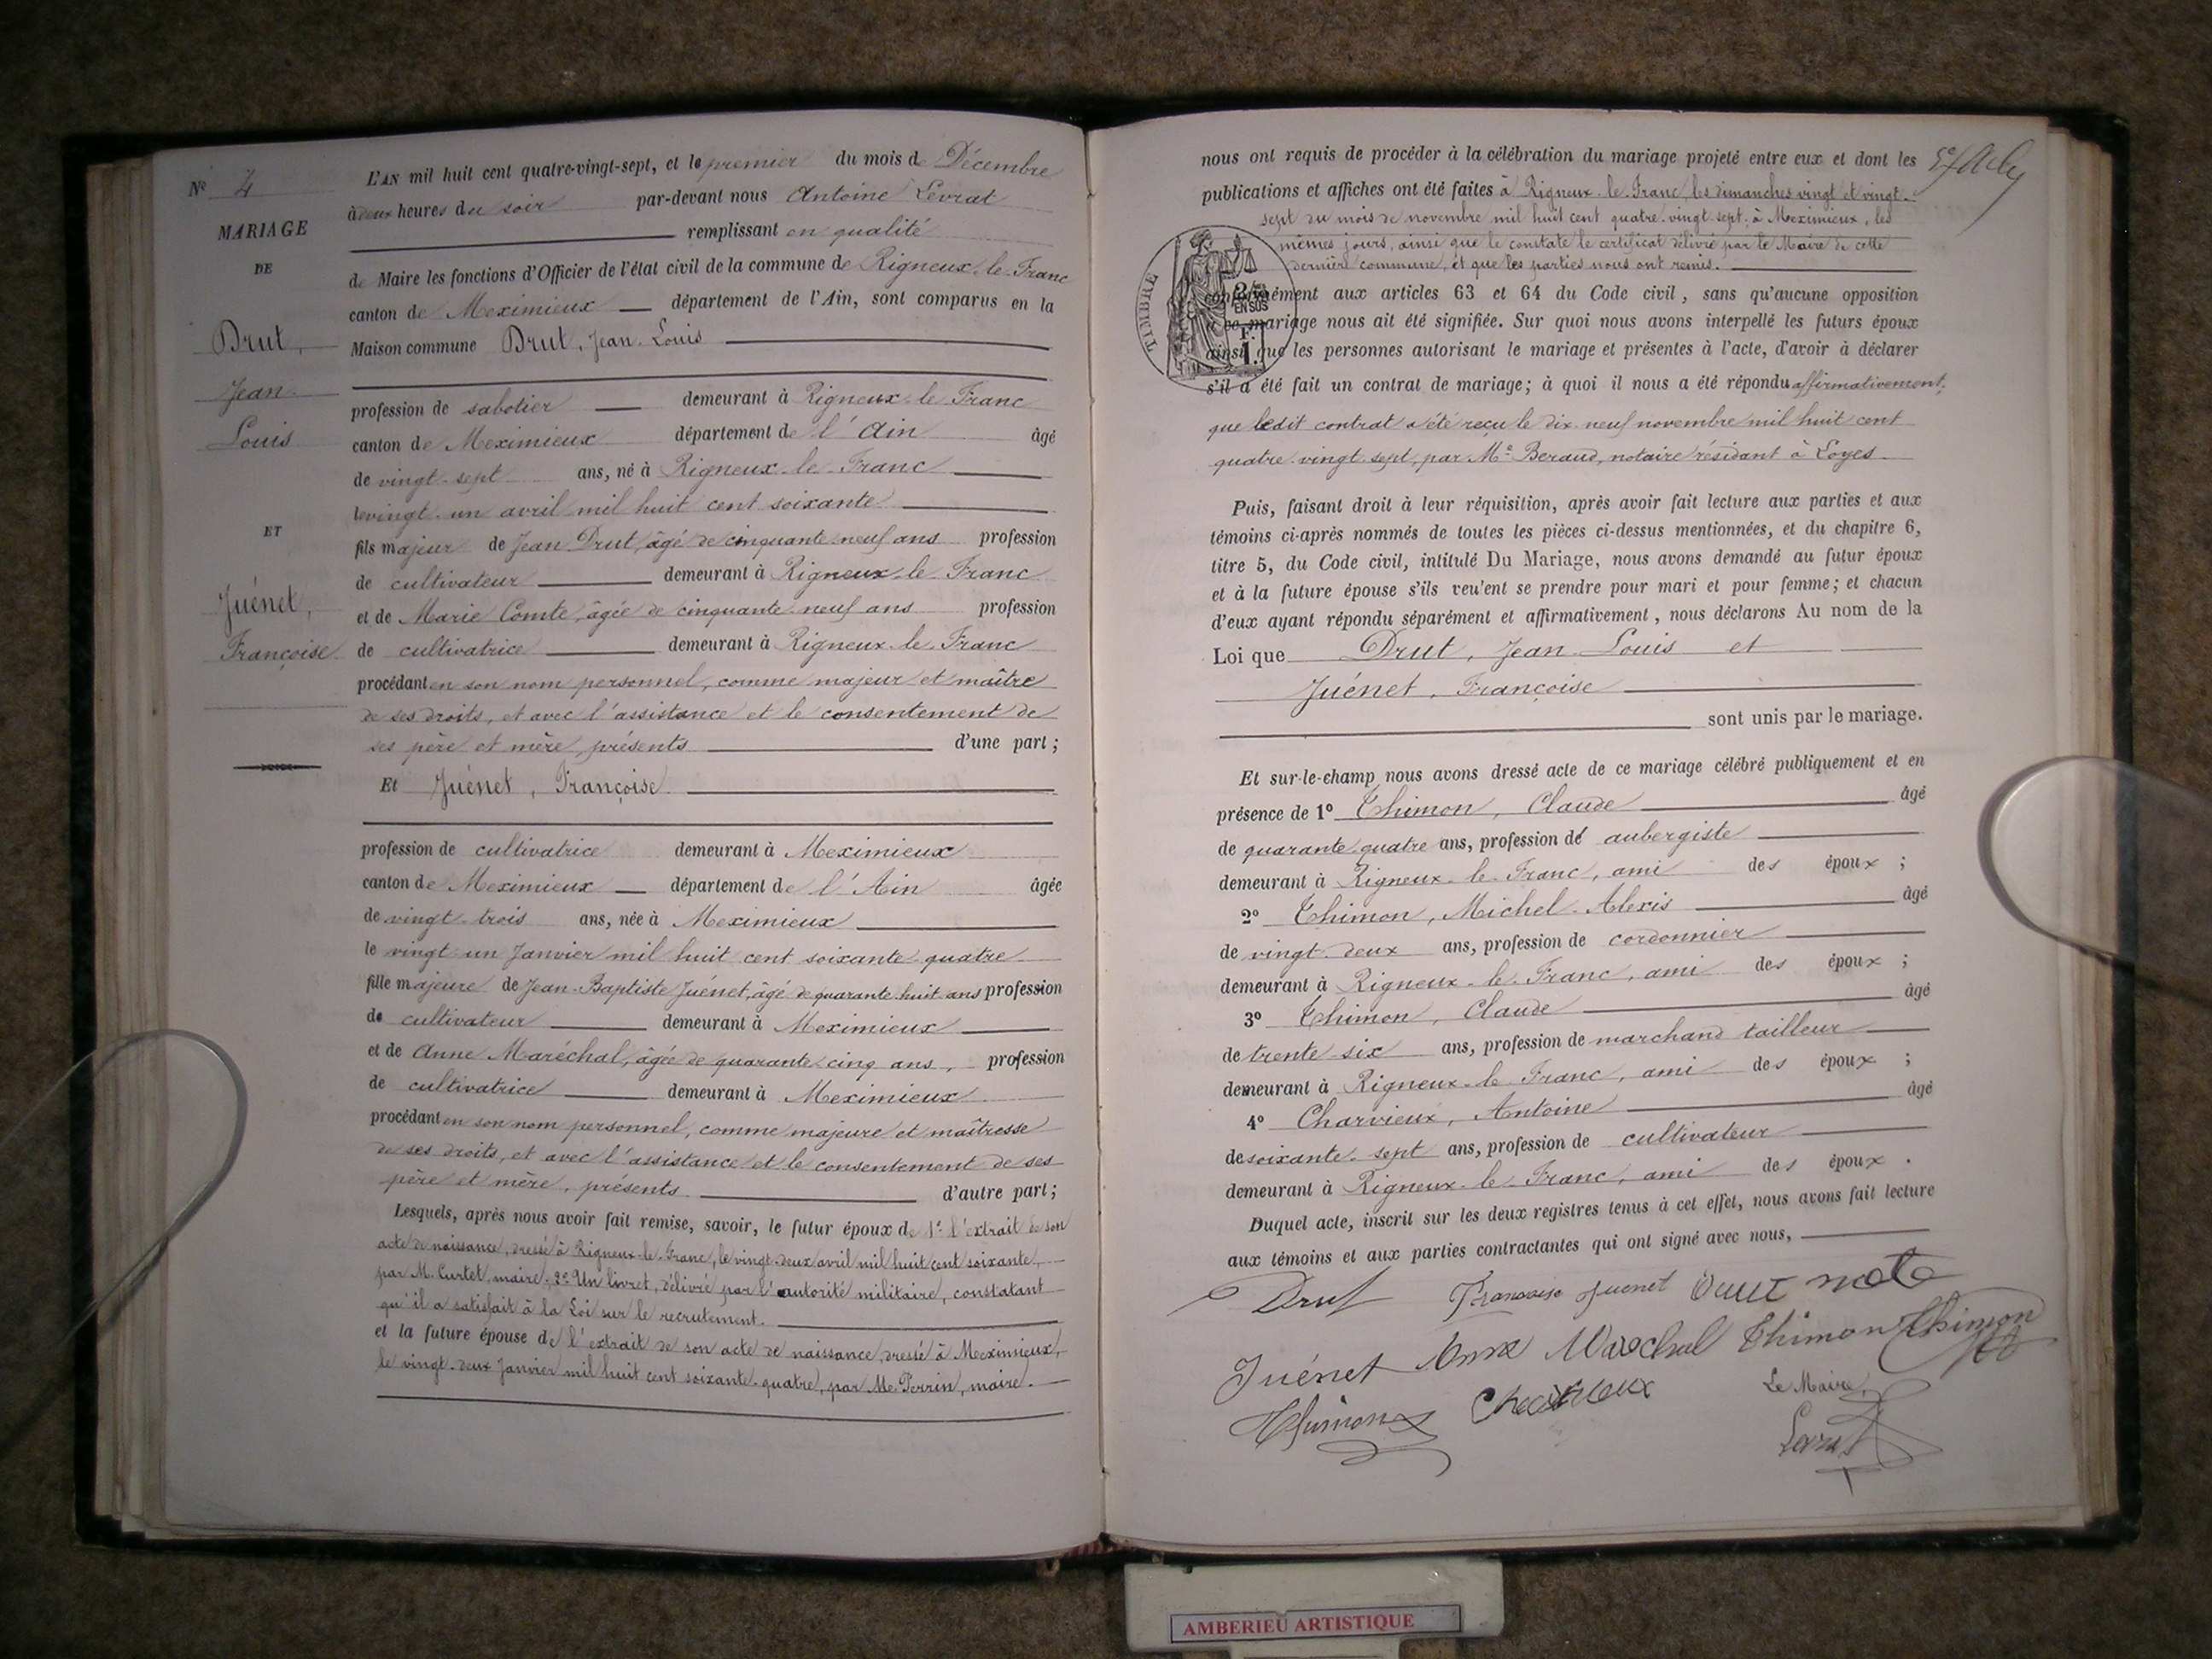 Nº 4
MARIAGE
DE
Drut,
Jean
Louis
ET
Juénet,
Françoise
L'AN mil huit cent quatre-vingt-sept, et le premier du mois de Décembre
à deux heures du soir par-devant nous Antoine Levrat
remplissant en qualité
de Maire les fonctions d'Officier de l'état civil de la commune de Rigneux-le-Franc
canton de Meximieux département de l'Ain, sont comparus en la
Maison commune Drut, Jean-Louis
profession de sabotier demeurant à Rigneux-le-Franc
canton de Meximieux département de l'Ain âgé
de vingt-sept ans, né à Rigneux-le-Franc
le vingt-un avril mil huit cent soixante
fils majeur de Jean Drut, âgé de cinquante-neuf ans profession
de cultivateur demeurant à Rigneux-le-Franc
et de Marie Comte, âgée de cinquante-neuf ans profession
de cultivatrice demeurant à Rigneux-le-Franc
procédant en son nom personnel, comme majeur et maître
de ses droits, et avec l'assistance et le consentement de
ses père et mère, présents d'une part;
Et Juénet, Françoise
profession de cultivatrice demeurant à Meximieux
canton de Meximieux département de l'Ain âgée
de vingt-trois ans, née à Meximieux
le vingt-un Janvier mil huit cent soixante-quatre
fille majeure de Jean-Baptiste Juénet, âgé de quarante-huit ans profession
de cultivateur demeurant à Meximieux
et de Anne Maréchal, âgée de quarante-cinq ans, profession
de cultivatrice demeurant à Meximieux
procédant en son nom personnel, comme majeure et maîtresse
de ses droits, et avec l'assistance et le consentement de ses
père et mère, présents d'autre part;
Lesquels, après nous avoir fait remise, savoir, le futur époux de 1º l'extrait de son
acte de naissance, dressé à Rigneux-le-Franc, le vingt-deux avril mil huit cent soixante,
par M. Curtet, maire; 2º Un livret, délivré par l'autorité militaire, constatant
qu'il a satisfait à la Loi sur le recrutement.
et la future épouse de l'extrait de son acte de naissance, dressé à Meximieux,
le vingt-deux Janvier mil huit cent soixante-quatre, par Mr Perrin, maire.
nous ont requis de procéder à la célébration du mariage projeté entre eux et dont les
publications et affiches ont été faites à Rigneux-le-Franc, les dimanches vingt et vingt-
sept du mois de novembre mil huit cent quatre-vingt-sept, à Meximieux, les
mêmes jours, ainsi que le constate le certificat délivré par le Maire de cette
dernière commune, et que les parties nous ont remis.
TIMBRE
2/10 EN SUS
F.
1.
conformément aux articles 63 et 64 du Code civil, sans qu'aucune opposition
à ce mariage nous ait été signifiée. Sur quoi nous avons interpellé les futurs époux
ainsi que les personnes autorisant le mariage et présentes à l'acte, d'avoir à déclarer
s'il a été fait un contrat de mariage; à quoi il nous a été répondu affirmativement;
que ledit contrat a été reçu le dix-neuf novembre mil huit cent
quatre-vingt-sept, par Me Beraud, notaire résidant à Loyes
Puis, faisant droit à leur réquisition, après avoir fait lecture aux parties et aux
témoins ci-après nommés de toutes les pièces ci-dessus mentionnées, et du chapitre 6,
titre 5, du Code civil, intitulé Du Mariage, nous avons demandé au futur époux
et à la future épouse s'ils veulent se prendre pour mari et pour femme; et chacun
d'eux ayant répondu séparément et affirmativement, nous déclarons Au nom de la
Loi que Drut, Jean-Louis et
Juénet, Françoise
sont unis par le mariage.
Et sur-le-champ nous avons dressé acte de ce mariage célébré publiquement et en
présence de 1º Thimon, Claude âgé
de quarante-quatre ans, profession de aubergiste
demeurant à Rigneux-le-Franc, ami des époux;
2º Thimon, Michel-Alexis âgé
de vingt-deux ans, profession de cordonnier
demeurant à Rigneux-le-Franc, ami des époux;
3º Thimon, Claude âgé
de trente-six ans, profession de marchand tailleur
demeurant à Rigneux-le-Franc, ami des époux;
4º Charvieux, Antoine âgé
de soixante-sept ans, profession de cultivateur
demeurant à Rigneux-le-Franc, ami des époux.
Duquel acte, inscrit sur les deux registres tenus à cet effet, nous avons fait lecture
aux témoins et aux parties contractantes qui ont signé avec nous,
Drut Francoise Juenet
Juénet Anne Marechal Thimon Thimon
Thimon Charvieux Le Maire,
Levrat
AMBERIEU ARTISTIQUE